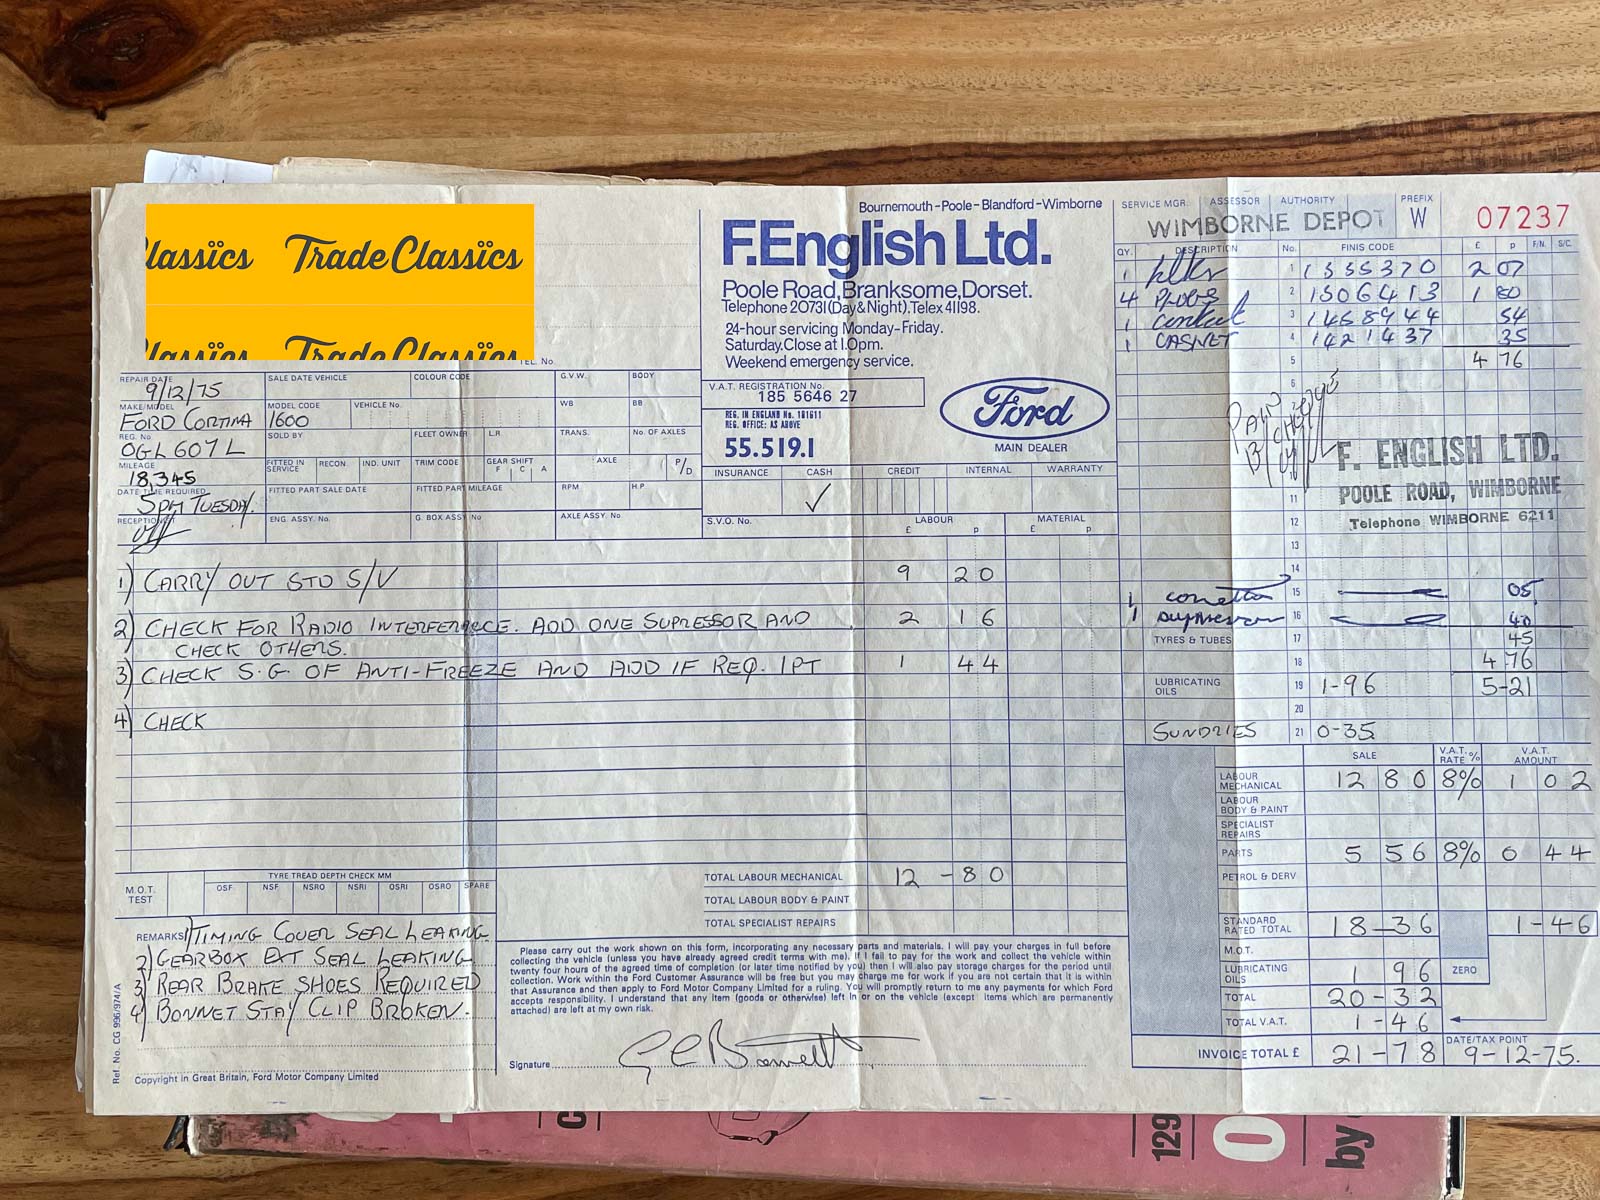 Classics TradeClassics
Classics TradeClassics
TEL. No.
REPAIR DATE 9/12/75
SALE DATE VEHICLE
COLOUR CODE
G.V.W.
BODY
MAKE/MODEL FORD CORTINA
MODEL CODE 1600
VEHICLE No.
WB
BB
REG. No OGL 607 L
SOLD BY
FLEET OWNER
L.R
TRANS.
No. OF AXLES
MILEAGE 18,345
FITTED IN SERVICE
RECON.
IND. UNIT
TRIM CODE
GEAR SHIFT F C A
AXLE
P/D
DATE TIME REQUIRED 5PM TUESDAY.
FITTED PART SALE DATE
FITTED PART MILEAGE
RPM
H.P
RECEPTIONIST
ENG. ASSY. No.
G. BOX ASSY No
AXLE ASSY. No.
Bournemouth-Poole-Blandford-Wimborne
F.English Ltd.
Poole Road, Branksome, Dorset.
Telephone 20731 (Day & Night). Telex 41198.
24-hour servicing Monday-Friday.
Saturday. Close at 1.0pm.
Weekend emergency service.
V.A.T. REGISTRATION No.
185 5646 27
REG. IN ENGLAND No. 181611
REG. OFFICE: AS ABOVE
55.519.1
Ford
MAIN DEALER
INSURANCE CASH CREDIT INTERNAL WARRANTY
✓
S.V.O. No. LABOUR MATERIAL
£ p £ p
1) CARRY OUT STD S/V 9 20
2) CHECK FOR RADIO INTERFERENCE. ADD ONE SUPRESSOR AND 2 16
CHECK OTHERS.
3) CHECK S.G. OF ANTI-FREEZE AND ADD IF REQ. 1PT 1 44
4) CHECK
TOTAL LABOUR MECHANICAL 12-80
TOTAL LABOUR BODY & PAINT
TOTAL SPECIALIST REPAIRS
M.O.T. TEST
TYRE TREAD DEPTH CHECK MM
OSF NSF NSRO NSRI OSRI OSRO SPARE
REMARKS 1) TIMING COVER SEAL LEAKING.
2) GEARBOX EXT SEAL LEAKING
3) REAR BRAKE SHOES REQUIRED
4) BONNET STAY CLIP BROKEN.
Ref. No. CG 996/974/A
Copyright in Great Britain, Ford Motor Company Limited
Please carry out the work shown on this form, incorporating any necessary parts and materials. I will pay your charges in full before
collecting the vehicle (unless you have already agreed credit terms with me). If I fail to pay for the work and collect the vehicle within
twenty four hours of the agreed time of completion (or later time notified by you) then I will also pay storage charges for the period until
collection. Work within the Ford Customer Assurance will be free but you may charge me for work if you are not certain that it is within
that Assurance and then apply to Ford Motor Company Limited for a ruling. You will promptly return to me any payments for which Ford
accepts responsibility. I understand that any item (goods or otherwise) left in or on the vehicle (except items which are permanently
attached) are left at my own risk.
Signature
SERVICE MGR. ASSESSOR AUTHORITY PREFIX
WIMBORNE DEPOT W 07237
QY. DESCRIPTION No. FINIS CODE £ p F/N. S/C.
1 1 1335370 2 07
4 PLUGS 2 1506413 1 80
1 contact 3 1458944 54
1 GASKET 4 1421437 35
5 4 76
6
PAID BY CHEQUE
F. ENGLISH LTD.
10
11 POOLE ROAD, WIMBORNE
12 Telephone WIMBORNE 6211
13
14
1 15 05
1 suppressor 16 40
TYRES & TUBES 17 45
18 4 76
LUBRICATING OILS 19 1-96 5-21
20
SUNDRIES 21 0-35
SALE V.A.T. RATE % V.A.T. AMOUNT
LABOUR MECHANICAL 12 80 8% 1 02
LABOUR BODY & PAINT
SPECIALIST REPAIRS
PARTS 5 56 8% 0 44
PETROL & DERV
STANDARD RATED TOTAL 18-36 1-46
M.O.T.
LUBRICATING OILS 1 96 ZERO
TOTAL 20-32
TOTAL V.A.T. 1-46
INVOICE TOTAL £ 21-78
DATE/TAX POINT 9-12-75.
129
O
by